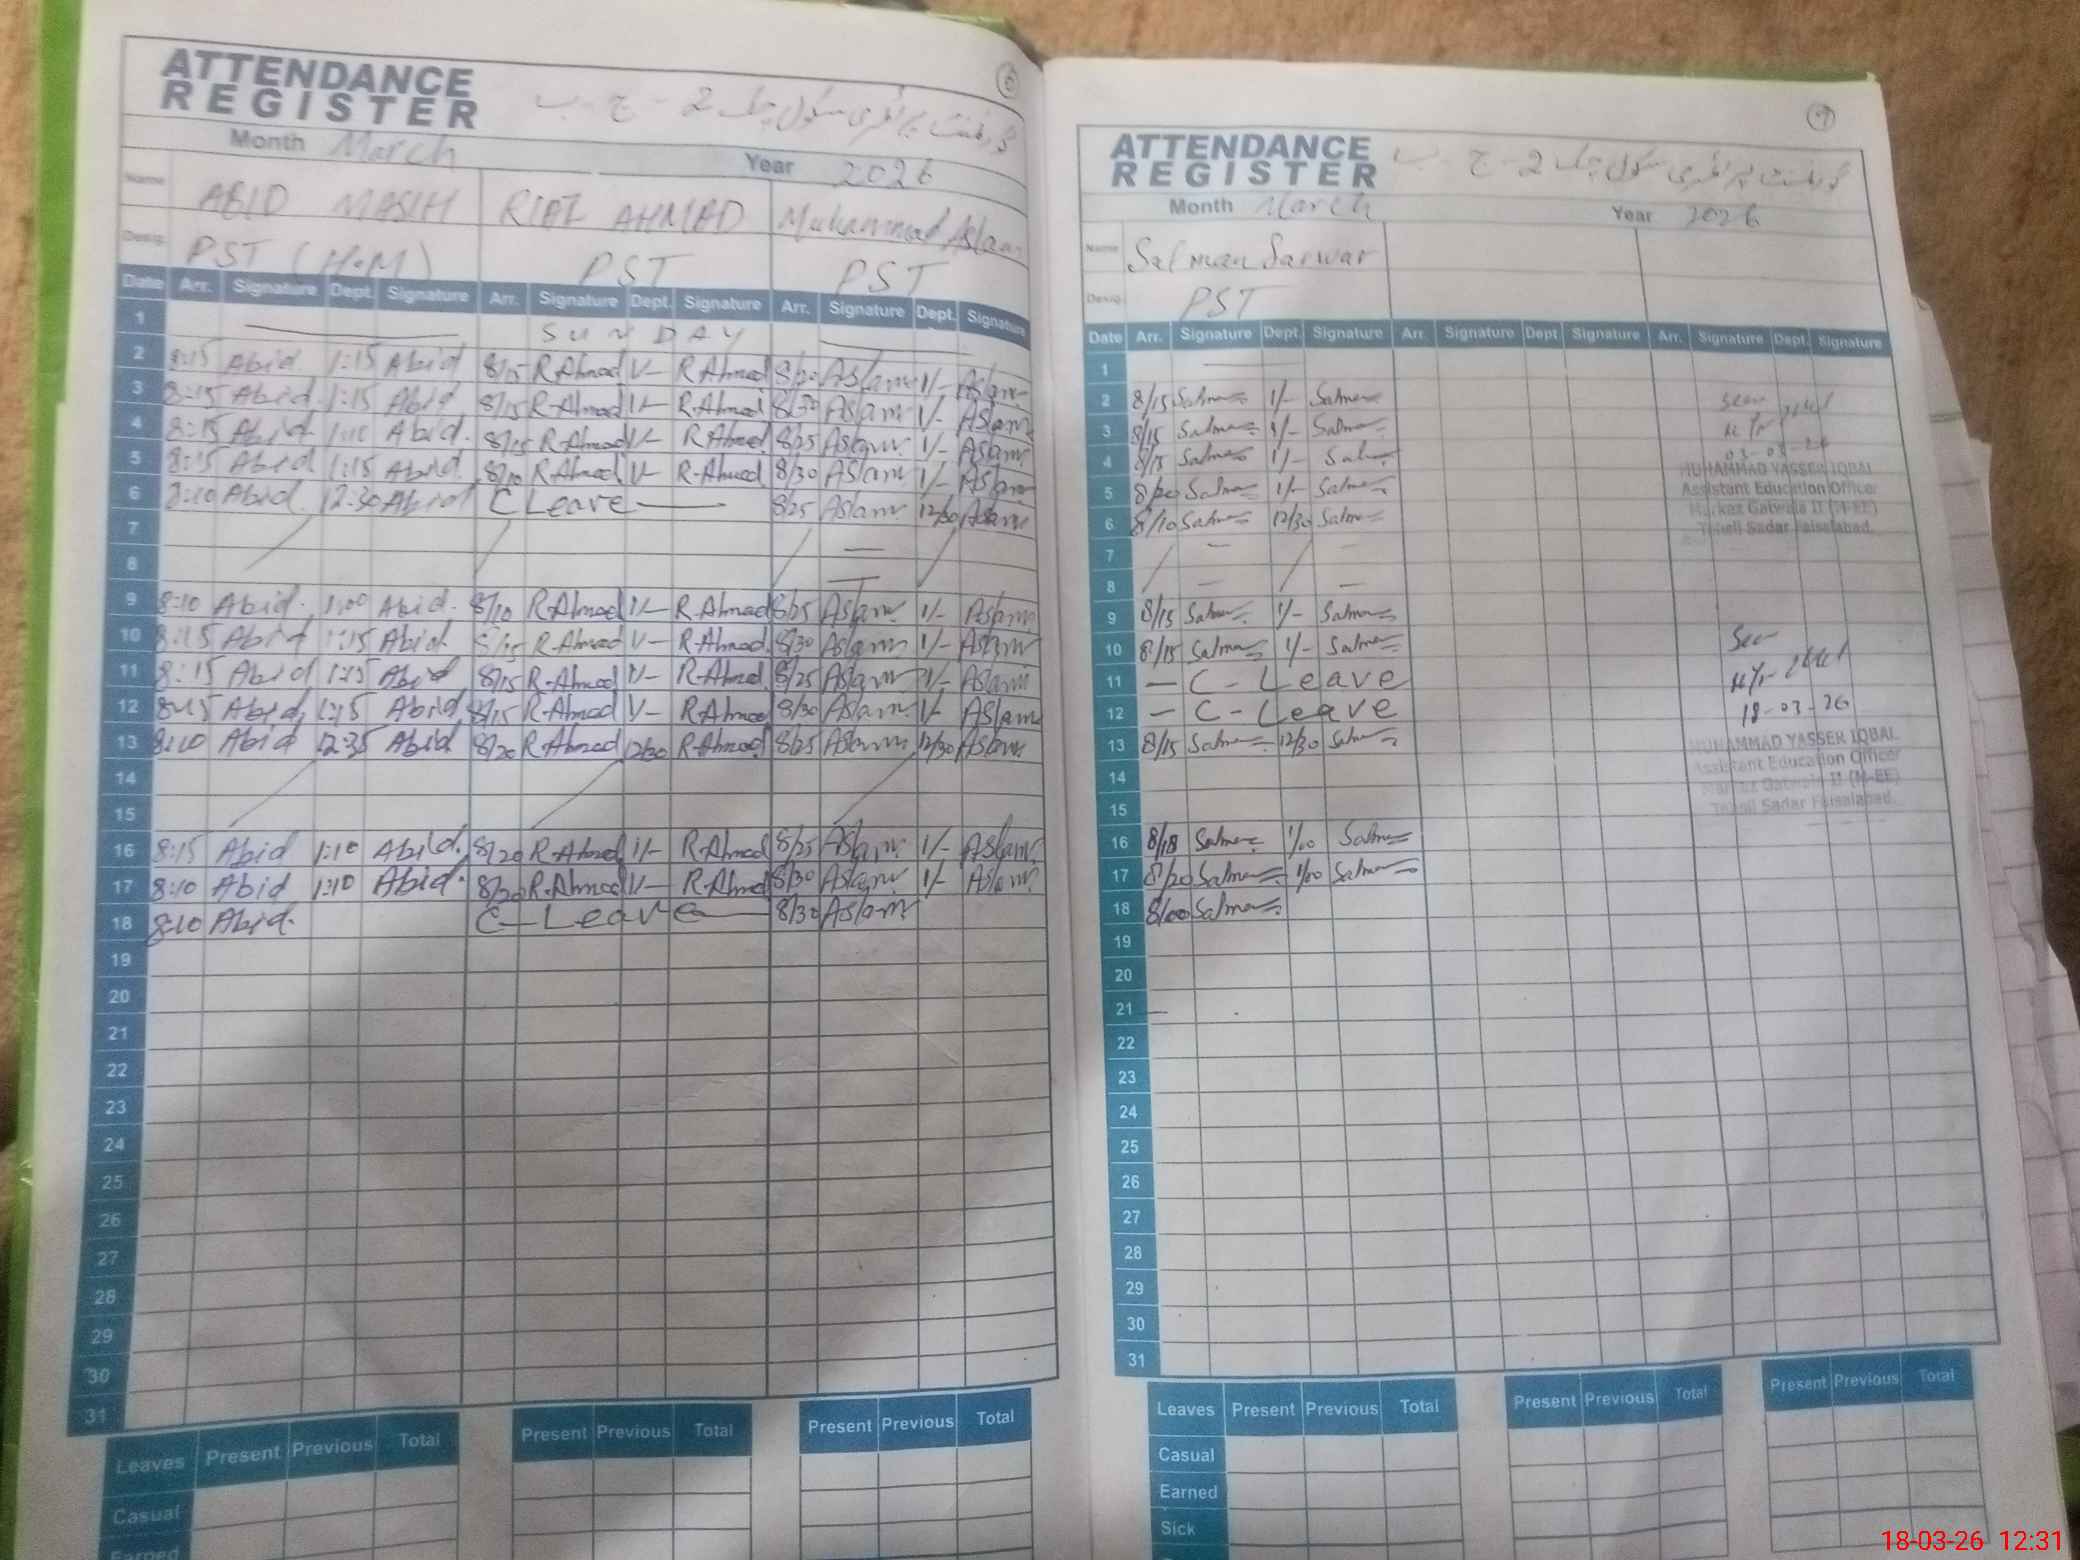 6
ATTENDANCE
REGISTER
گورنمنٹ پرائمری سکول چک 2 - ج - ب
Month March Year 2026
Name ABID MASIH RIAZ AHMAD Muhammad Aslam
Desig. PST (H.M) PST PST
Date Arr. Signature Dept. Signature Arr. Signature Dept. Signature Arr. Signature Dept. Signature
1 SUNDAY
2 8:15 Abid 1:15 Abid 8/15 R.Ahmad 1/- R.Ahmad 8/30 Aslam 1/- Aslam
3 8:15 Abid 1:15 Abid 8/15 R.Ahmad 1/- R.Ahmad 8/30 Aslam 1/- Aslam
4 8:15 Abid 1:10 Abid. 8/15 R.Ahmad 1/- R.Ahmad 8/25 Aslam 1/- Aslam
5 8:15 Abid 1:15 Abid. 8/10 R.Ahmad 1/- R.Ahmad 8/30 Aslam 1/- Aslam
6 8:10 Abid. 12:30 Abid C Leave — 8/25 Aslam 12/30 Aslam
7
8
9 8:10 Abid. 1:00 Abid. 8/10 R.Ahmad 1/- R.Ahmad 8/25 Aslam 1/- Aslam
10 8:15 Abid 1:15 Abid 8/15 R.Ahmad 1/- R.Ahmad. 8/30 Aslam 1/- Aslam
11 8:15 Abid 1:15 Abid 8/15 R.Ahmad 1/- R.Ahmad. 8/25 Aslam 1/- Aslam
12 8:15 Abid 1:15 Abid 8/15 R.Ahmad 1/- R.Ahmad 8/30 Aslam 1/- Aslam
13 8:10 Abid 12:35 Abid 8/20 R.Ahmad 12/30 R.Ahmad 8/25 Aslam 12/30 Aslam
14
15
16 8:15 Abid 1:10 Abid. 8/20 R.Ahmad 1/- R.Ahmad 8/25 Aslam 1/- Aslam
17 8:10 Abid 1:10 Abid. 8/20 R.Ahmad 1/- R.Ahmad 8/30 Aslam 1/- Aslam
18 8:10 Abid. C-Leave 8/30 Aslam
19
20
21
22
23
24
25
26
27
28
29
30
31
Leaves Present Previous Total Present Previous Total Present Previous Total
Casual
Earned
ATTENDANCE
REGISTER
گورنمنٹ پرائمری سکول چک 2 - ج - ب
Month March Year 2026
Name Salman Sarwar
Desig. PST
Date Arr. Signature Dept. Signature Arr. Signature Dept Signature Arr. Signature Dept. Signature
1
2 8/15 Salman 1/- Salman
3 8/15 Salman 1/- Salman
4 8/15 Salman 1/- Salman
5 8/20 Salman 1/- Salman
6 8/10 Salman 12/30 Salman
7
8
9 8/15 Salman 1/- Salman
10 8/15 Salman 1/- Salman
11 — C - Leave
12 — C - Leave
13 8/15 Salman 12/30 Salman
14
15
16 8/18 Salman 1/00 Salman
17 8/20 Salman 1/00 Salman
18 8/00 Salman
19
20
21
22
23
24
25
26
27
28
29
30
31
Seen
03-03-26
MUHAMMAD YASSER IQBAL
Assistant Education Officer
Markaz Gatwala II (M-EE)
Tehsil Sadar Faisalabad.
Seen
18-03-26
MUHAMMAD YASSER IQBAL
Assistant Education Officer
Markaz Gatwala II (M-EE)
Tehsil Sadar Faisalabad.
Leaves Present Previous Total Present Previous Total Present Previous Total
Casual
Earned
Sick
18-03-26 12:31